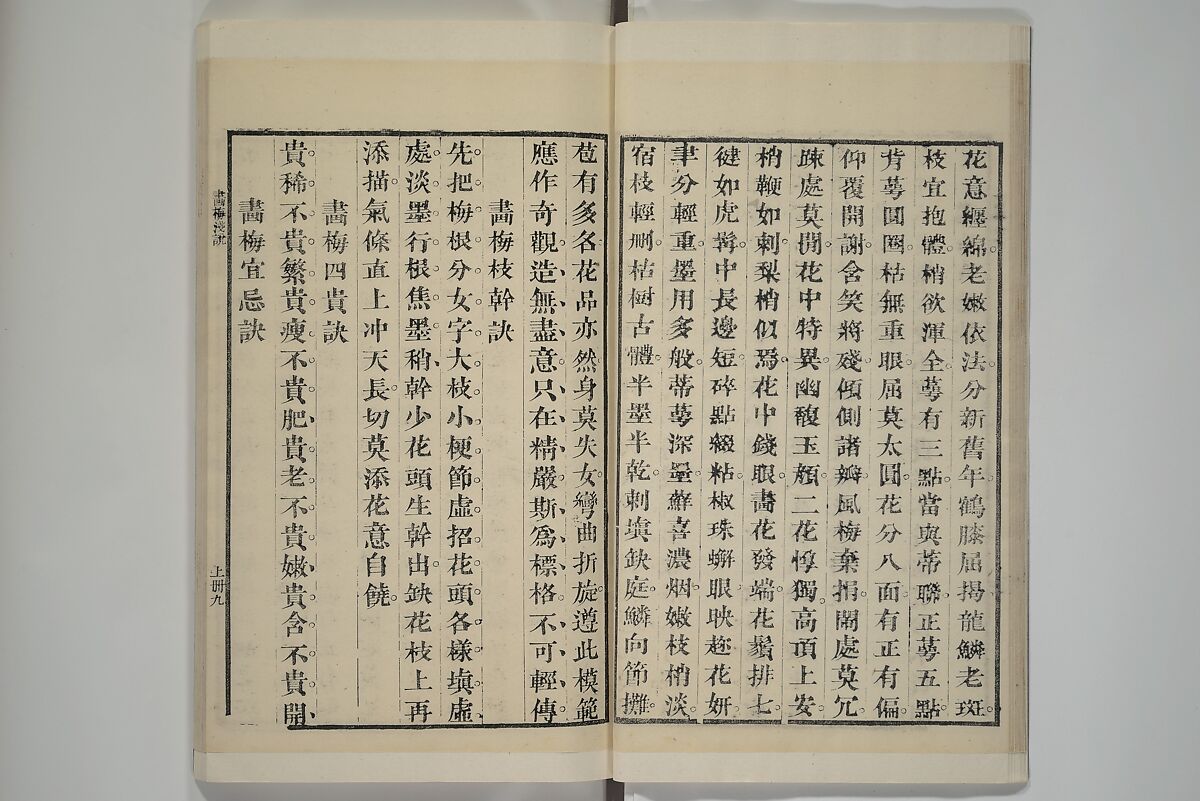 花意纏綿老嫩依法分新舊年鶴膝屈揭龍鱗老斑
枝宜抱體梢欲渾全萼有三點當與蒂聯正萼五點
背萼圓圈枯無重眼屈莫太圓花分八面有正有偏
仰覆開謝含笑將殘傾側諸瓣風梅棄捐閙處莫冗
踈處莫閒花中特異幽馥玉顏二花惸獨高頂上安
梢鞭如刺梨梢似焉花中錢眼畵花發端花鬚排七
健如虎鬚中長邊短碎點綴粘椒珠蠏眼映趂花妍
聿分輕重墨用多般蒂萼深墨蘚喜濃烟嫩枝梢淡
宿枝輕刪枯樹古體半墨半乾刺塡缺庭鱗向節攤
苞有多名花品亦然身莫失女彎曲折旋遵此模範
應作奇觀造無盡意只在精嚴斯爲標格不可輕傳
畵梅枝幹訣
先把梅根分女字大枝小梗節虛招花頭各樣塡虛
處淡墨行根焦墨稍幹少花頭生幹出缺花枝上再
添描氣條直上冲天長切莫添花意自饒
畵梅四貴訣
貴稀不貴繁貴瘦不貴肥貴老不貴嫩貴含不貴開
畵梅宜忌訣
畵梅淺說
上冊九